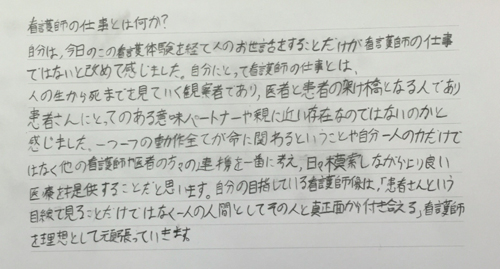 看護師の仕事とは何か?
自分は、今日のこの看護体験を経て人のお世話をすることだけが看護師の仕事
ではないと改めて感じました。自分にとって看護師の仕事とは、
人の生から死までを見ていく観察者であり、医者と患者の架け橋となる人であり
患者さんにとってのある意味パートナーや親に近い存在なのではないのかと
感じました。一つ一つの動作全てが命に関わるということや自分一人の力だけで
はなく他の看護師や医者の方々の連携を一番に考え、日々模索しながらより良い
医療を提供することだと思います。自分の目指している看護師像は、「患者さんという
目線で見ることだけではなく一人の人間としてその人と真正面から付き合える」看護師
を理想として頑張っていきます。